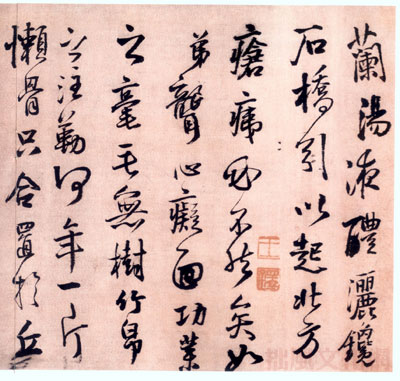 蘭湯液醴灑鑱
石橋引以起此方
瘡痏必不能矣如
弟聾心癡面功業
之毫毛無樹竹帛
之注勒何年一片
懶骨只合置於丘